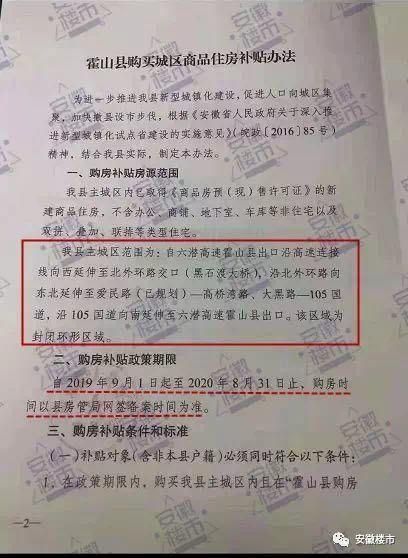 霍山县购买城区商品住房补贴办法
为进一步推进我县新型城镇化建设，促进人口向城区集
聚，加快撤县设市步伐，根据《安徽省人民政府关于深入推
进新型城镇化试点省建设的实施意见》（皖政【2016】85 号）
精神，结合我县实际，制定本办法。
一、购房补贴房源范围
我县主城区内已取得《商品房预（现）售许可证》的新
建商品住房，不含办公、商铺、地下室、车库等非住宅以及
双拼、叠加、联排等类型住宅。
我县主城区范围为：自六潜高速霍山县出口沿高速连接
线向西延伸至北外环路交口（黑石渡大桥），沿北外环路向
东北延伸至爱民路（已规划）—高桥湾路、大黑路—105 国
道，沿 105 国道向南延伸至六潜高速霍山县出口。该区域为
封闭环形区域。
二、购房补贴政策期限
自 2019 年 9 月 1 日起至 2020 年 8 月 31 日止，购房时
间以县房管局网签备案时间为准。
三、购房补贴条件和标准
（一）补贴对象（含非本县户籍）必须同时符合以下条件：
1、在政策期限内，购买我县主城区内且在“霍山县购房
—2—
安徽楼市